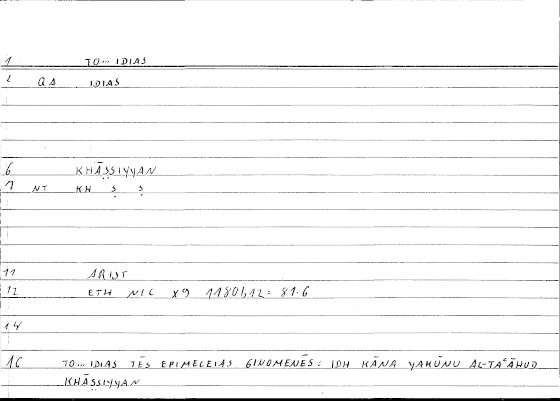 1 TO... IDIAS
2 QA IDIAS
6 KHĀṢṢIYYAN
7 NT KH Ṣ Ṣ
11 ARIST
12 ETH NIC X9 1180b12 = 81.6
14
16 TO... IDIAS TĒS EPIMELEIAS GINOMENĒS: IDH KĀNA YAKŪNU AL-TAʿĀHUD
KHĀṢṢIYYAN